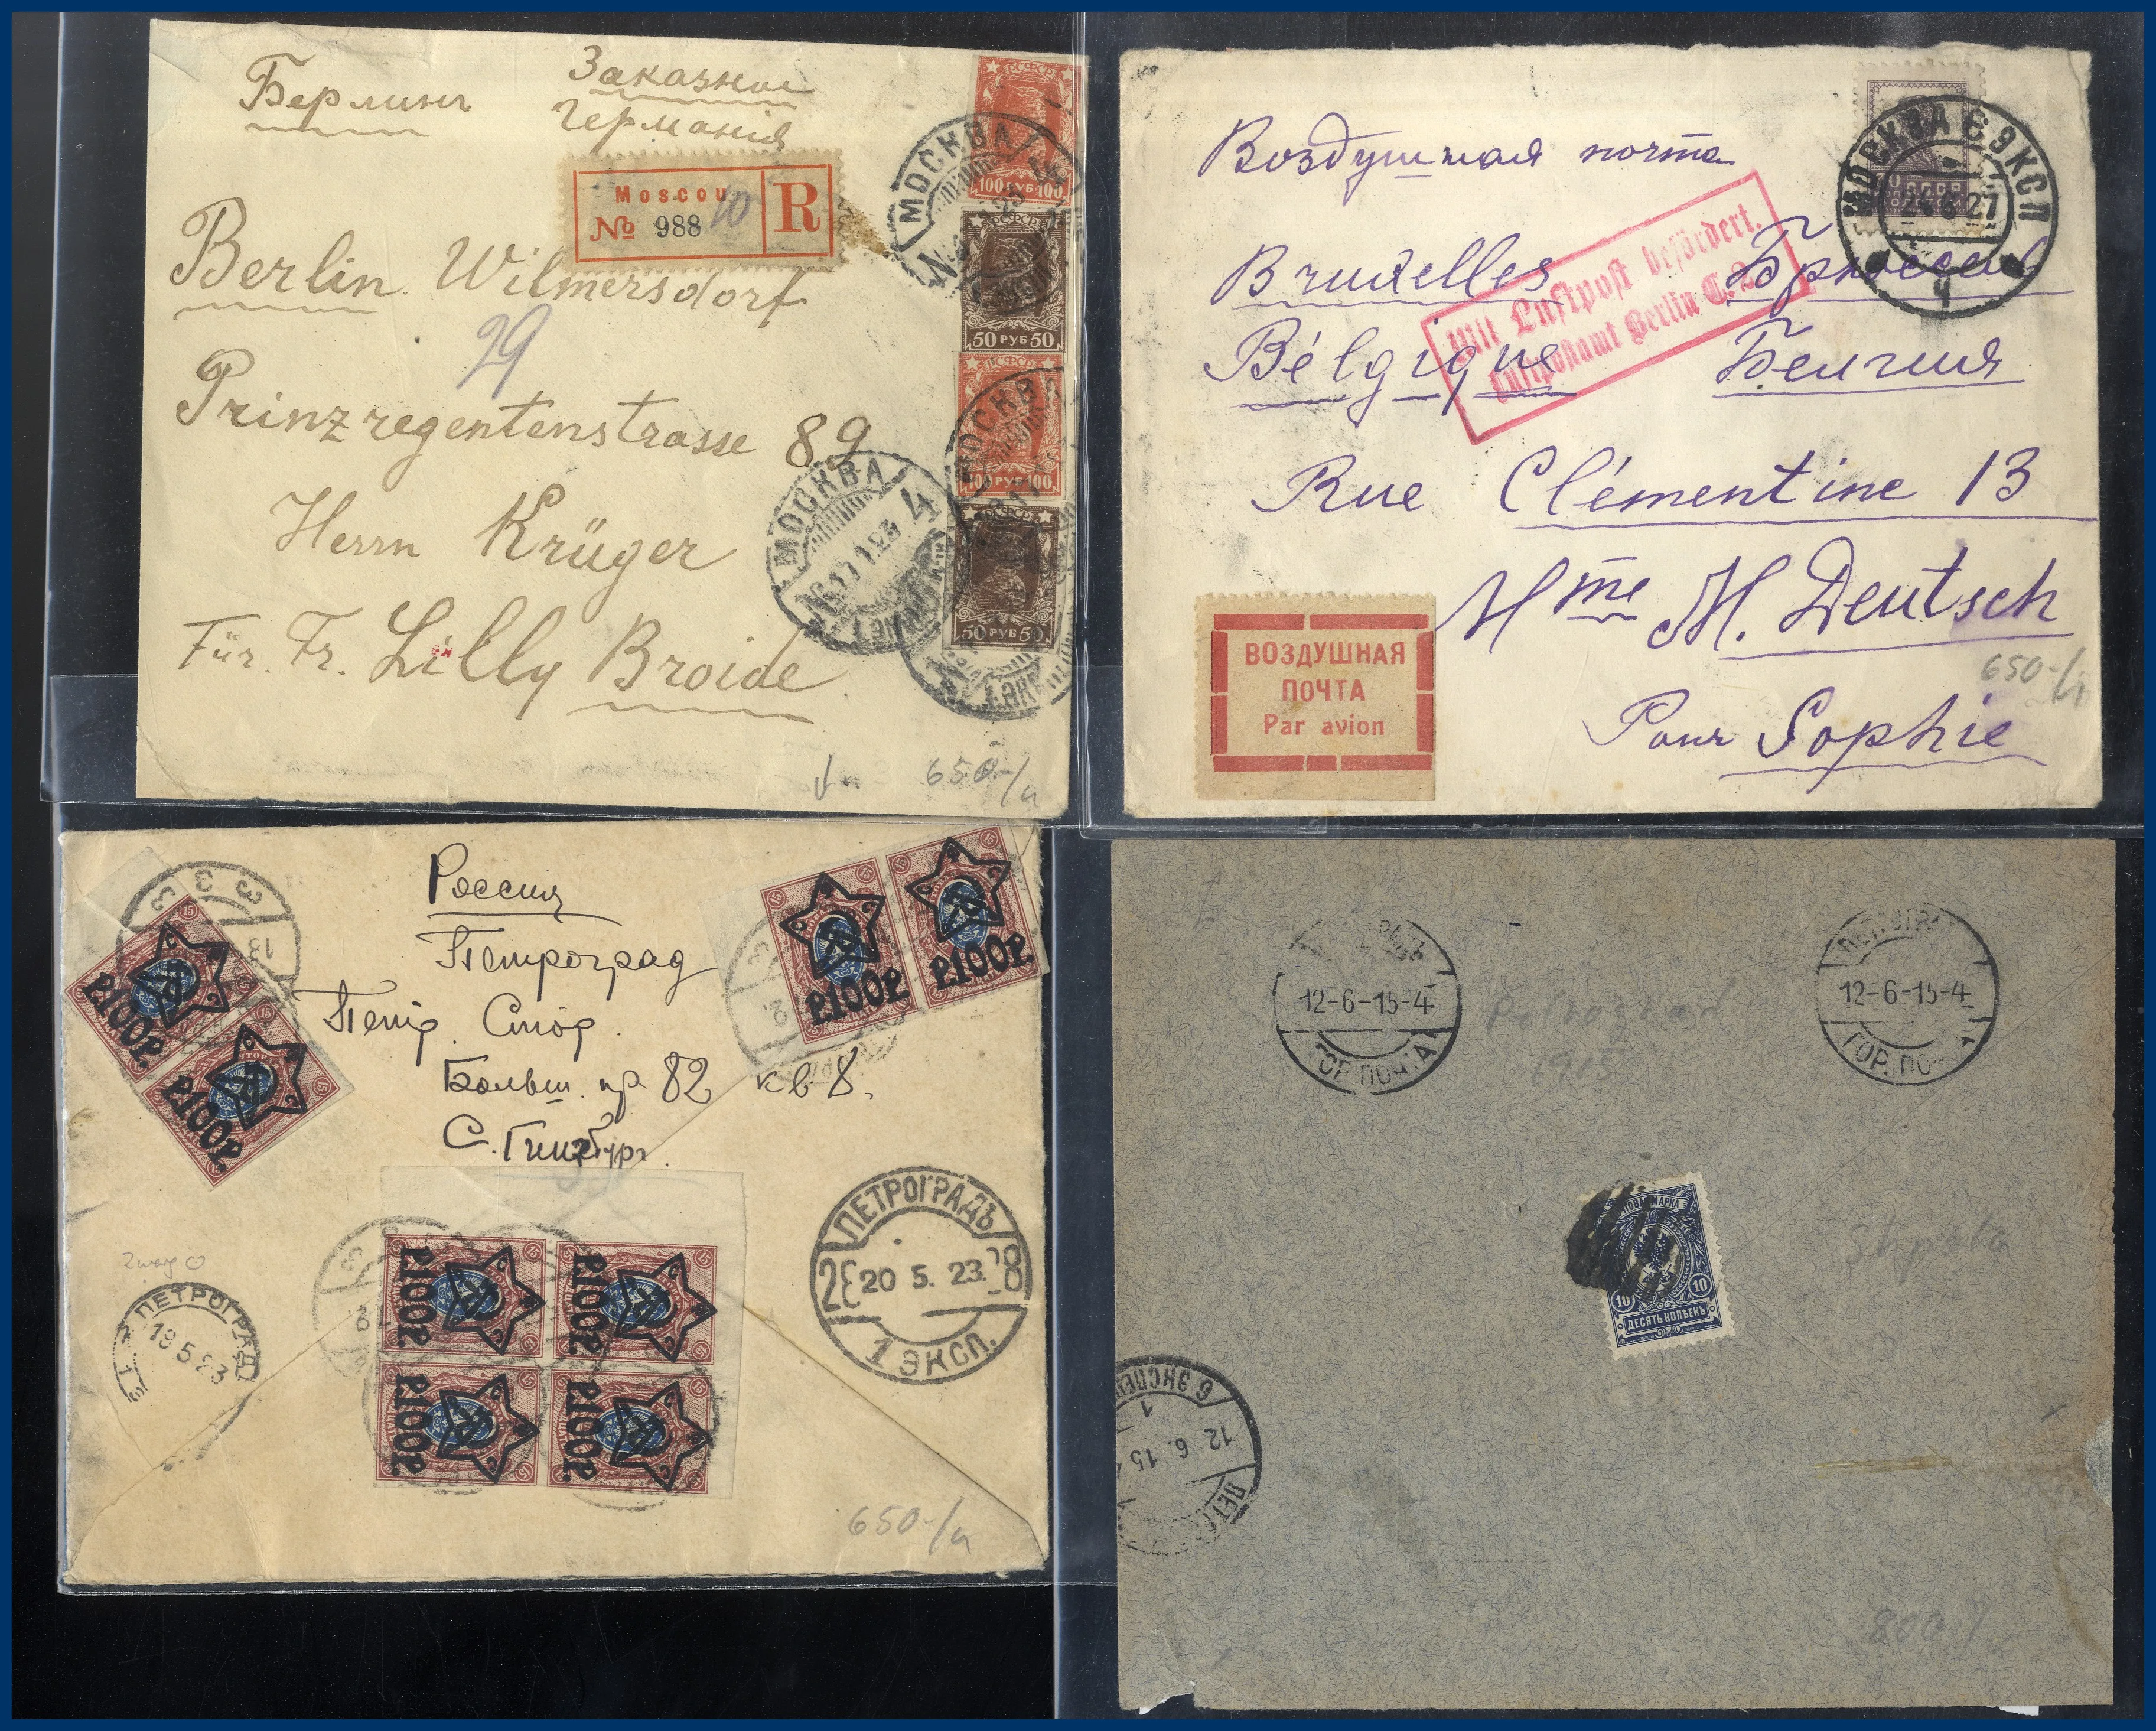 Берлинъ
Заказное
Германія
Moscou
№ 988
10
R
Berlin Wilmersdorf
29
Prinzregentenstrasse 89
Herrn Krüger
Für. Fr. Lilly Broide
РСФСР
100 РУБ 100
РСФСР
50 РУБ 50
РСФСР
100 РУБ 100
РСФСР
50 РУБ 50
МОСКВА
МОСКВА
МОСКВА 4
650-/a
Воздушная почта
МОСКВА 6 ЭКСП
27
Ч
Mit Luftpost befördert.
Luftpostamt Berlin C. 2.
Bruxelles Брюссель
Bélgique Бельгия
Rue Clémentine 13
Mme M. Deutsch
Pour Sophie
650-/
ВОЗДУШНАЯ
ПОЧТА
Par avion
Россия
Петроград
Петр. Стор.
Больш. пр 82 кв 8.
С. Гинзбург.
Р.100Р.
Р.100Р.
Р.100Р.
Р.100Р.
Р.100Р.
Р.100Р.
Р.100Р.
Р.100Р.
ПЕТРОГРАДЪ
20 5. 23.
1 ЭКСП.
ПЕТРОГРАД
19 5 23
650-/a
12-6-15-4
ГОР. ПОЧТА
ПЕТРОГРА
12-6-15-4
ГОР. ПО
Petrograd
1915
10
10
ДЕСЯТЬ КОПѢЕКЪ
6 ЭКСПЕ
1
12 6. 15
ПЕТ